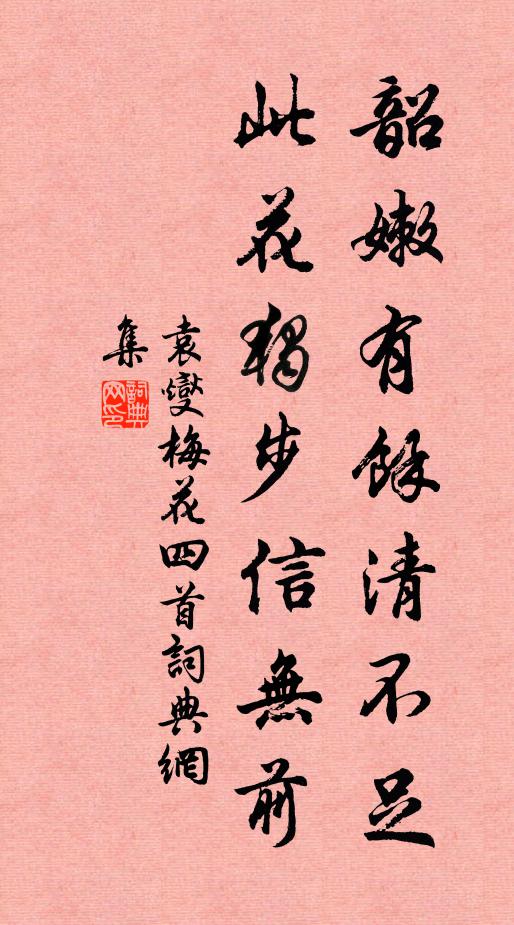 韶嫩有餘清不足
此花獨步信無前
袁燮梅花四首詞典網
集
詞典
网印